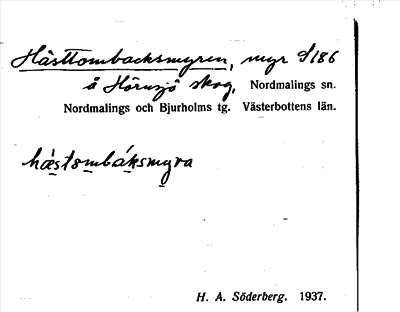 Hästtombacksmyren, myr S186
å Hörnsjö skog, Nordmalings sn.
Nordmalings och Bjurholms tg. Västerbottens län.
hæstombáksmyra
H. A. Söderberg. 1937.